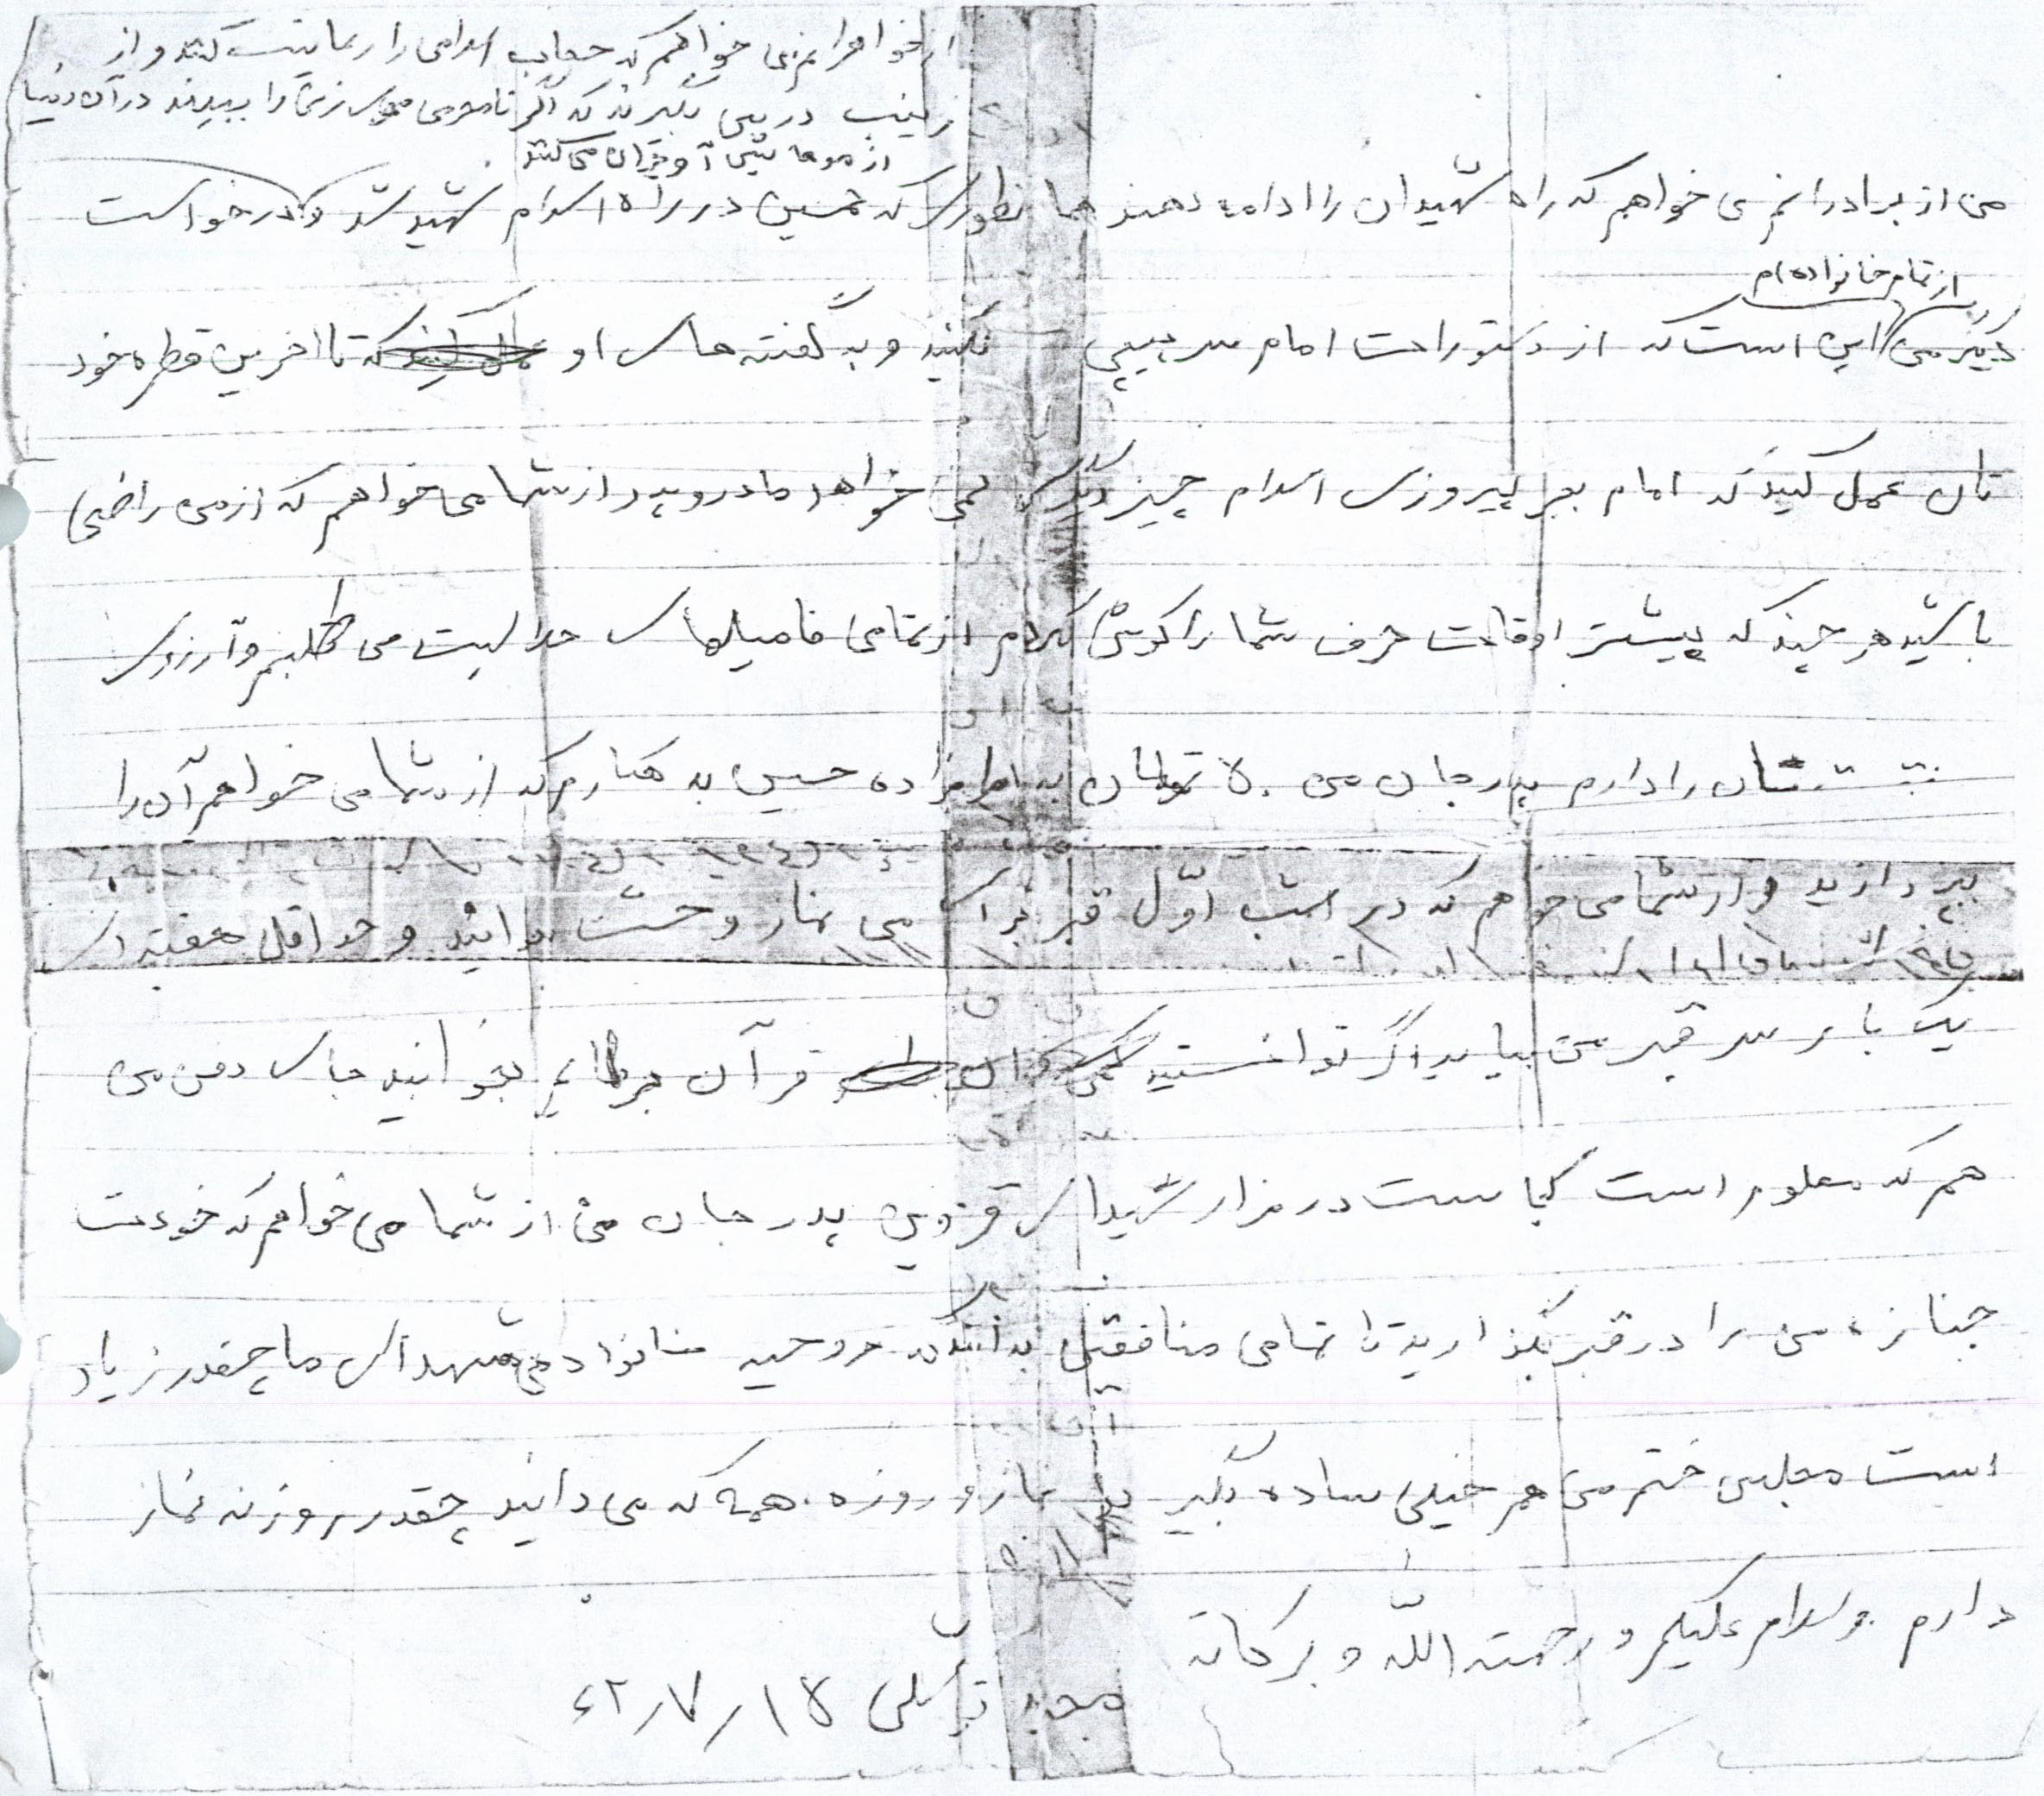 از خواهرانم می خواهم که حجاب اسلامی را رعایت کنند و از
زینب درس بگیرند که اگر نامحرمی موی زنها را ببیند در آن دنیا
از موها یش آویزان می کنند
من از برادرانم می خواهم که راه شهیدان را ادامه دهند همانطوری که حسین در راه اسلام شهید شد و درخواست
از تمام خانواده ام
دیگر من این است که از دستورات امام سرپیچی نکنید و به گفته های او که تا اخرین قطره خود
تان عمل کنید که امام بجز پیروزی اسلام چیز دیگری نمی خواهد مادر و پدر از شما می خواهم که از من راضی
باشید هر چند که بیشتر اوقات حرف شما را گوش نکردم از تمامی فامیلهای حلالیت می طلبم و آرزوی
را دارم پدر جان من ۵۰ تومان به امامزاده حسین بدهکارم که از شما می خواهم آن را
بپردازید و از شما می خواهم که در شب اوّل قبر برای من نماز وحشت بخوانید و حداقل هفته ای
یک بار سر قبر من بیایید اگر توانستید قرآن برایم بخوانید جای دفن من
هم که معلوم است کجاست در مزار شهدای قزوین پدر جان من از شما می خواهم که خودت
جنازه من را در قبر بگذارید تا تمامی منافقین بدانند که روحیه خانواده شهدای ما چقدر زیاد
است مجلس ختم من هم خیلی ساده بگیر نماز و روزه همه که می دانید چقدر روزه نماز
دارم والسلام علیکم و رحمته اللّه و برکاته
۶۲/۷/۱۵